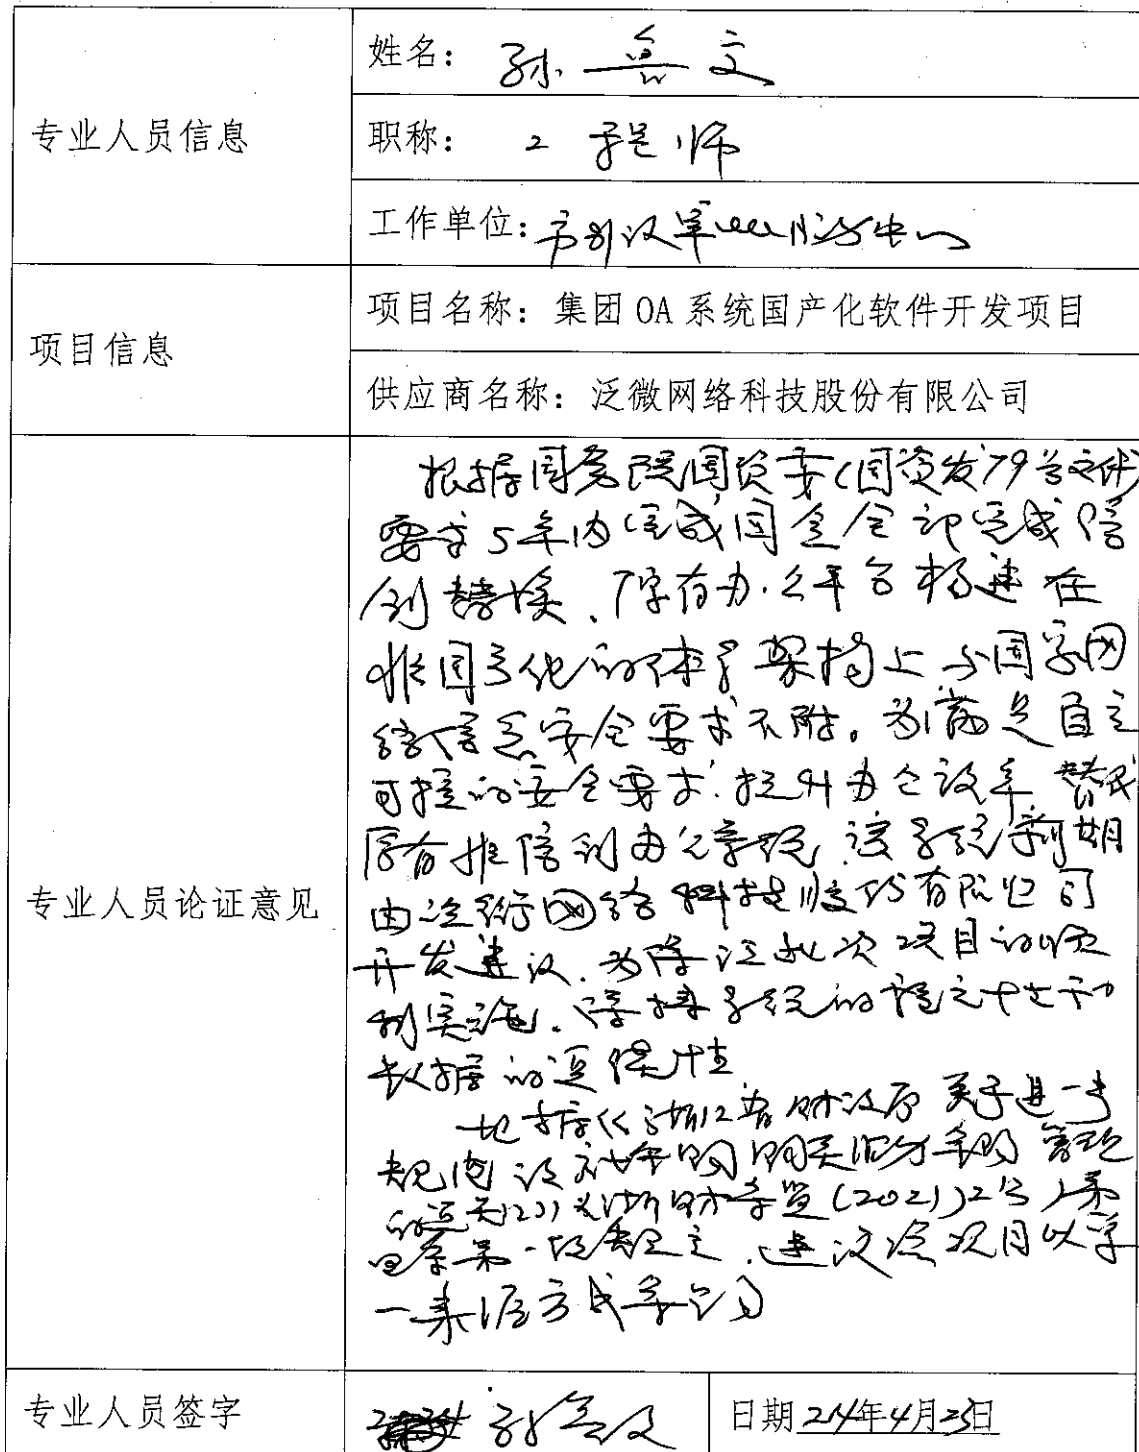 专业人员信息
姓名：孙鲁文
职称：工程师
工作单位：
项目信息
项目名称：集团 OA 系统国产化软件开发项目
供应商名称：泛微网络科技股份有限公司
专业人员论证意见
根据国务院国资委（国资发79号文件）
要求5年内完成国企全部完成信
创替换、原有办公平台构建在
非国产化的体系架构上与国家网
络信息安全要求不附。为满足自主
可控的安全要求.
原有非信创办公系统 该系统前期
由泛微网络科技股份有限公司
开发建议.为保证此次项目的顺
利实施.保持系统的稳定性和
数据的连续性
根据《浙江省财政厅关于进一步
规范政府采购 采购管理
的通知》(浙财采监(2021)22号)第
四条第一项规定.建议该项目以单
一来源方式采购
专业人员签字
孙鲁文
日期 24年4月23日